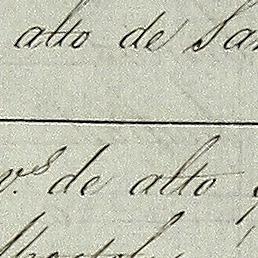 alto de San
v.s de alto